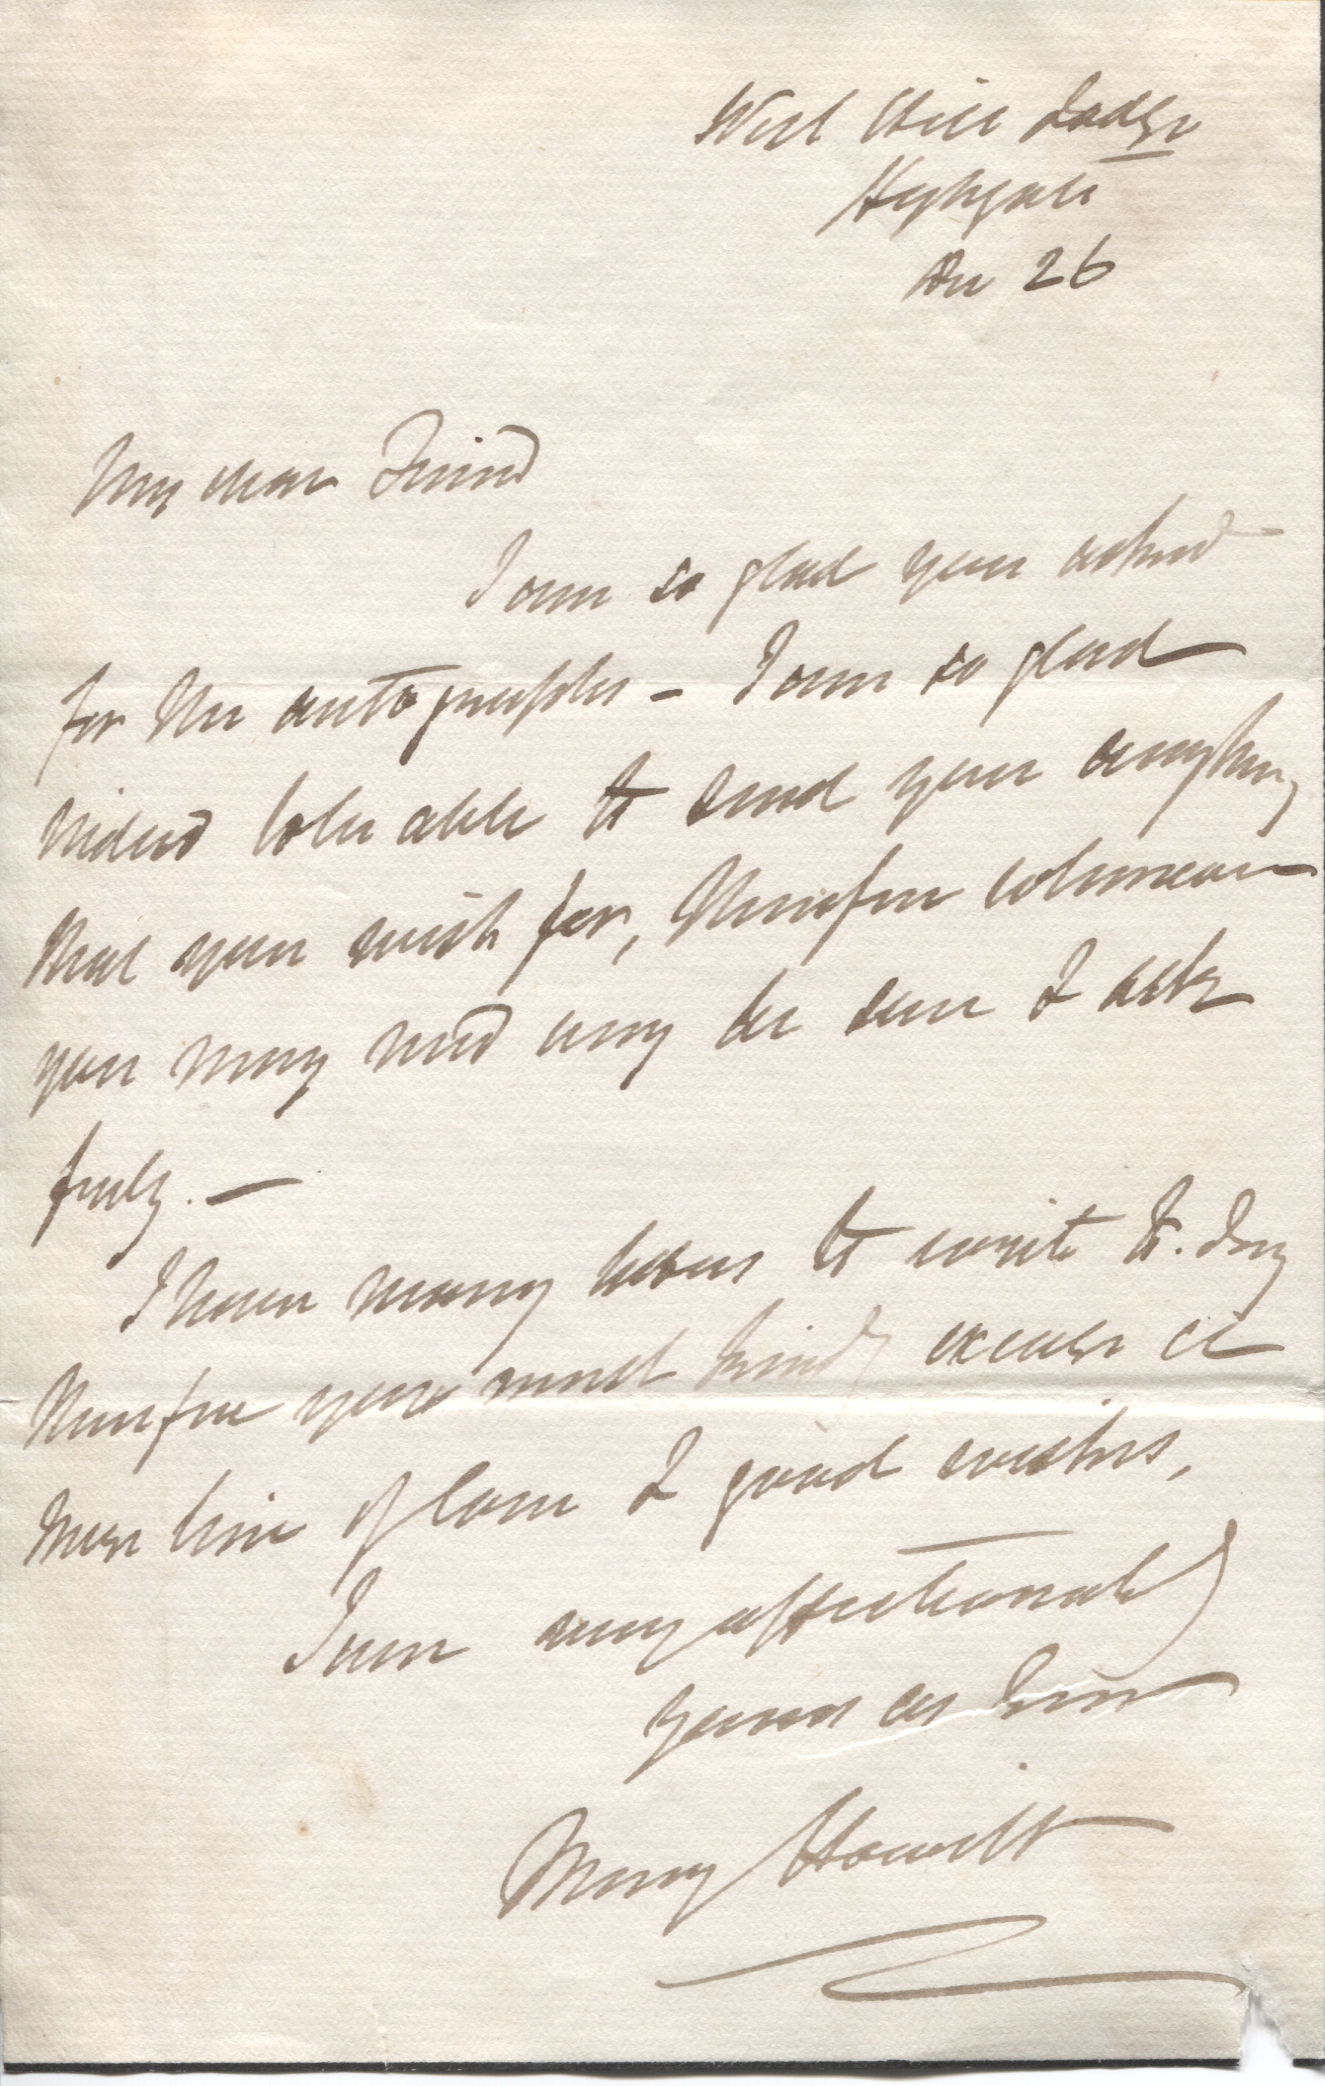 West Hill Lodge
Highgate
Dec 26
My dear Friend
I am so glad you asked
for the autographs – I am so glad
indeed to be able to send you anything
that you wish for, therefore whenever
you may need any be sure & ask
freely. —
I have many letters to write to-day
therefore you must kindly excuse a
mere line of love & good wishes,
I am very affectionately
yours as ever
Mary Howitt